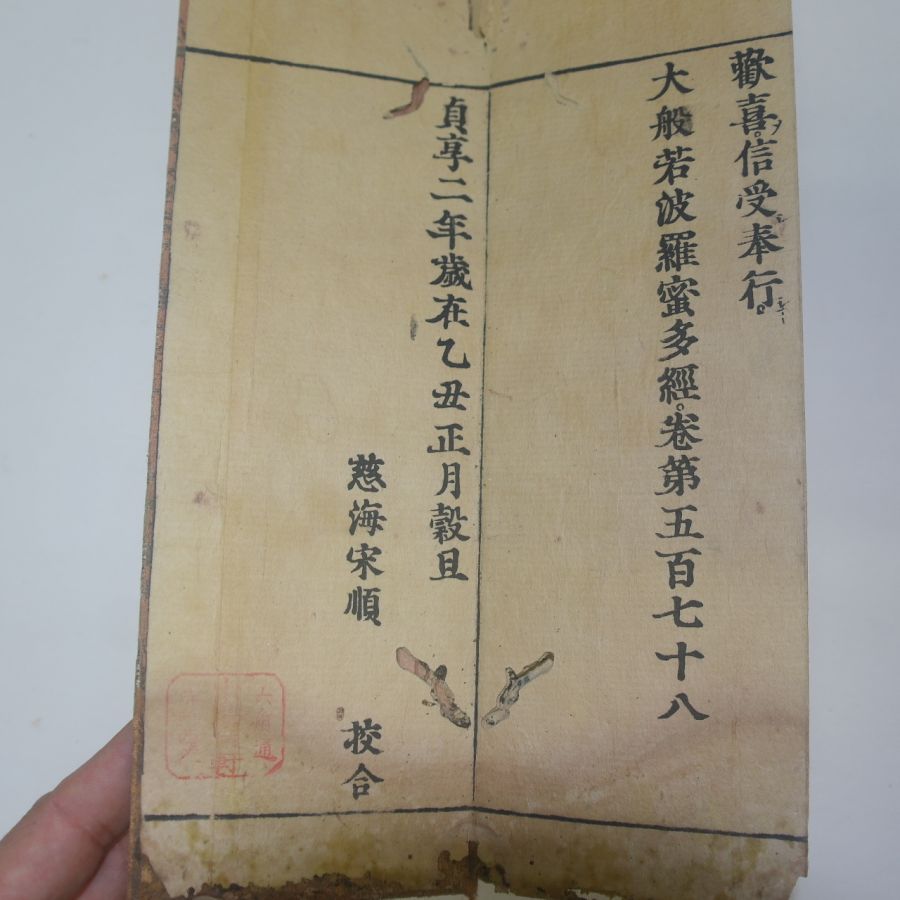 歡喜。信受奉行。
大般若波羅蜜多經。卷第五百七十八
貞享二年歲在乙丑正月穀旦
慈海宋順 挍合